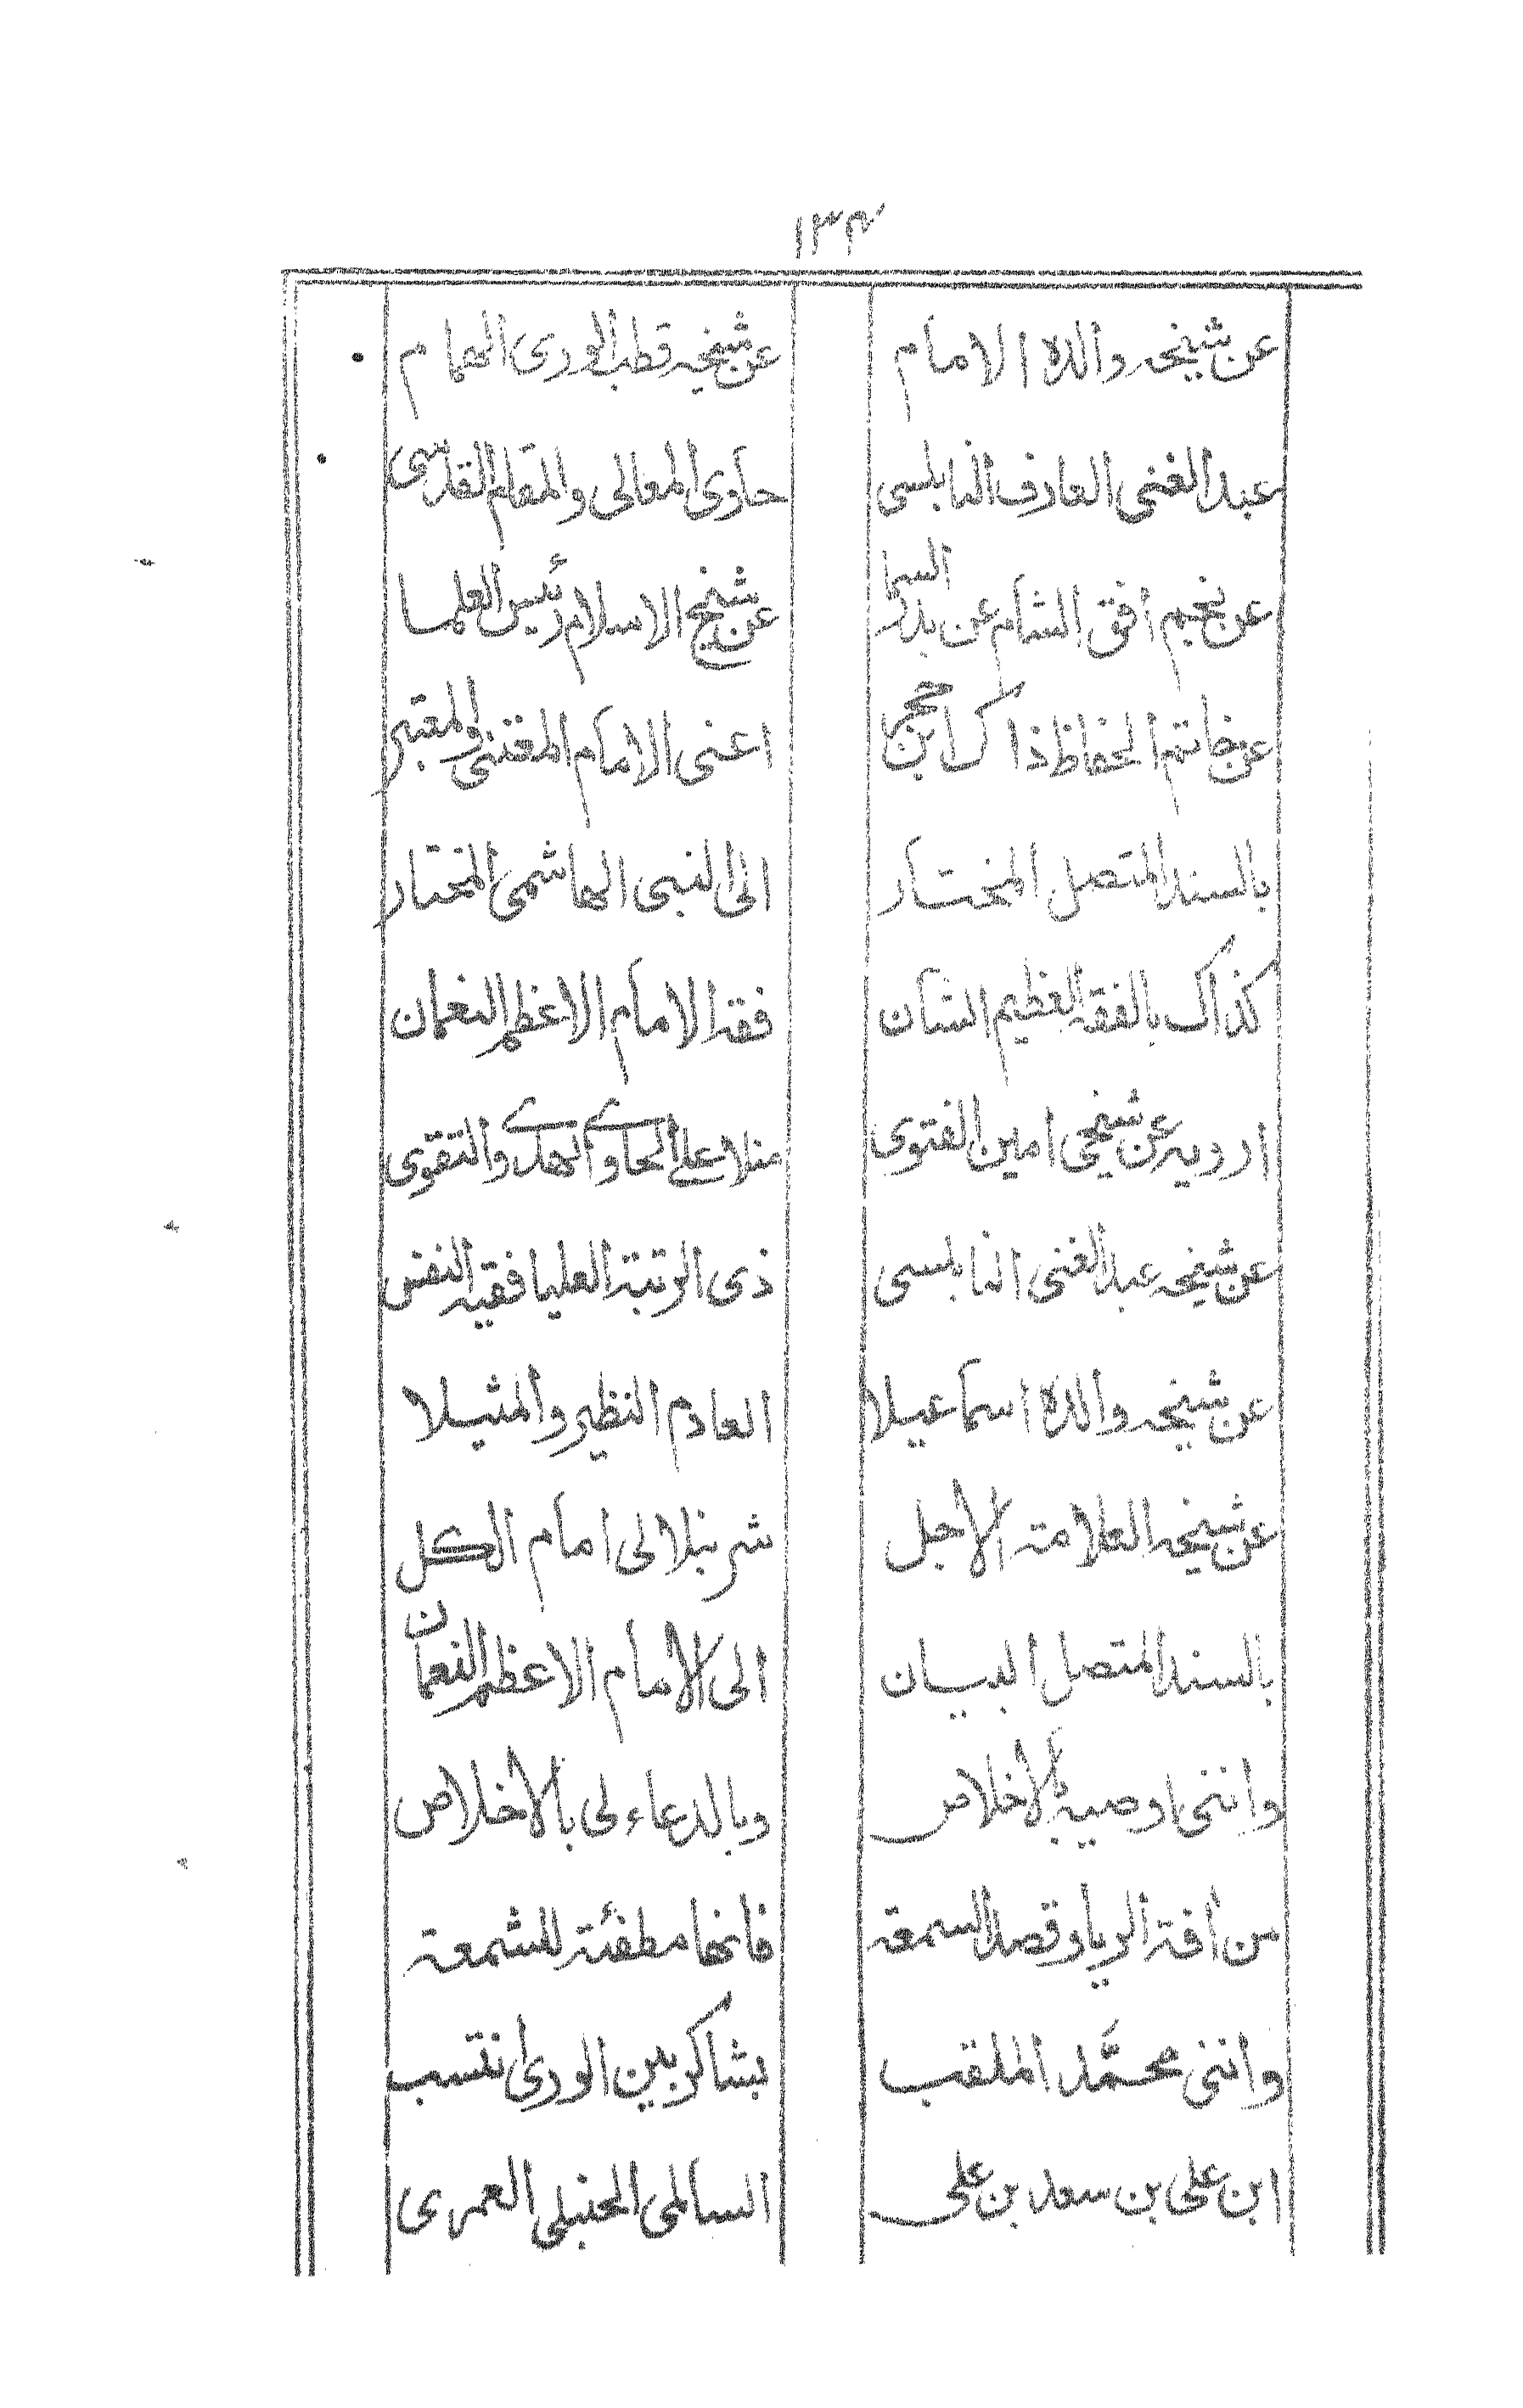 ١٣٤
عن شيخه والده الامام عن شيخه قطب الورى الهمام
عبد الغنى العارف النابلسى حاوى المعالى والمقام القدسى
عن نجم افق الشام عن بدر السما عن شيخ الاسلام رئيس العلما
عن خاتم الحفاظ ذاك ابن حجر اعنى الامام المقتفى والمعتبر
بالسند المتصل المختار الى النبى الهاشمى المختار
كذاك بالفقه العظيم الشان فقه الامام الاعظم النعمان
ارويه عن شيخى امين الفتوى منلا على الحاوى الهدى والتقوى
عن شيخه عبد الغنى النابلسى ذى الرتبة العليا فقيه النفس
عن شيخه والده اسماعيلا العادم النظير والمثيلا
عن شيخه العلامة الاجل شرنبلالى امام الكل
بالسند المتصل البيان الى الامام الاعظم النعمان
واننى اوصيه بالاخلاص وبالدعاء لى بالاخلاص
من افة الريا وقصد السمعة فانها مطفئة للشمعة
واننى محمَّد الملقب بشاكر بين الورى انتسب
ابن على بن سعد بن على السالمى الحنبلى العمرى